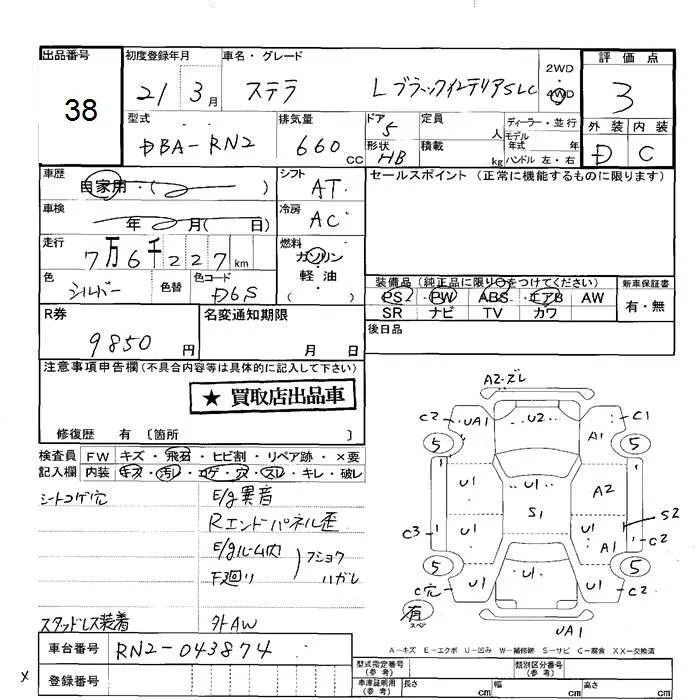 出品番号 初度登録年月 車名・グレード 2WD 評価点
38 21 3月 ステラ Lブラックインテリア SLC 4WD 3
型式 排気量 ドア 定員 人 ディーラー・並行 外装 内装
DBA-RN2 660 CC 5 モデル年式 年
形状 HB 積載 kg ハンドル 左・右 D C
車歴 自家用・( ) シフト AT セールスポイント (正常に機能するものに限ります)
車検 年 月( 日) 冷房 AC
走行 7万6千227km 燃料 ガソリン
色 シルバー 色替 色コード D6S 軽油 ( )
装備品(純正品に限り○をつけてください) 新車保証書
PS PW ABS エアB AW 有・無
SR ナビ TV カワ
R券 9850円 名変通知期限 月 日 後日品
注意事項申告欄(不具合内容等は具体的に記入して下さい)
★ 買取店出品車
修復歴 有 〔箇所 〕
検査員 FW キズ・飛石・ヒビ割・リペア跡・×要
記入欄 内装 キズ・汚れ・コゲ・穴・スレ・キレ・破レ
シートコゲ穴 E/g異音
Rエンドパネル歪
E/gルーム内
F廻り フショク ハガレ
スタッドレス装着 外AW
A2・ズレ
C2 UA1 U2 A1 C1
5 5
U1 U1 A2
S1 S2
C3 U1 U1 A1 C2
5 5
C穴 U1 U1 U1 C2
有 スペア
UA1
A-キズ E-エクボ U-凹み W-補修跡 S-サビ C-腐食 XX-交換済
車台番号 RN2-043874 型式指定番号(参考) 類別区分番号(参考)
x 登録番号 車庫証明用(参考) 長さ cm 幅 cm 高さ cm